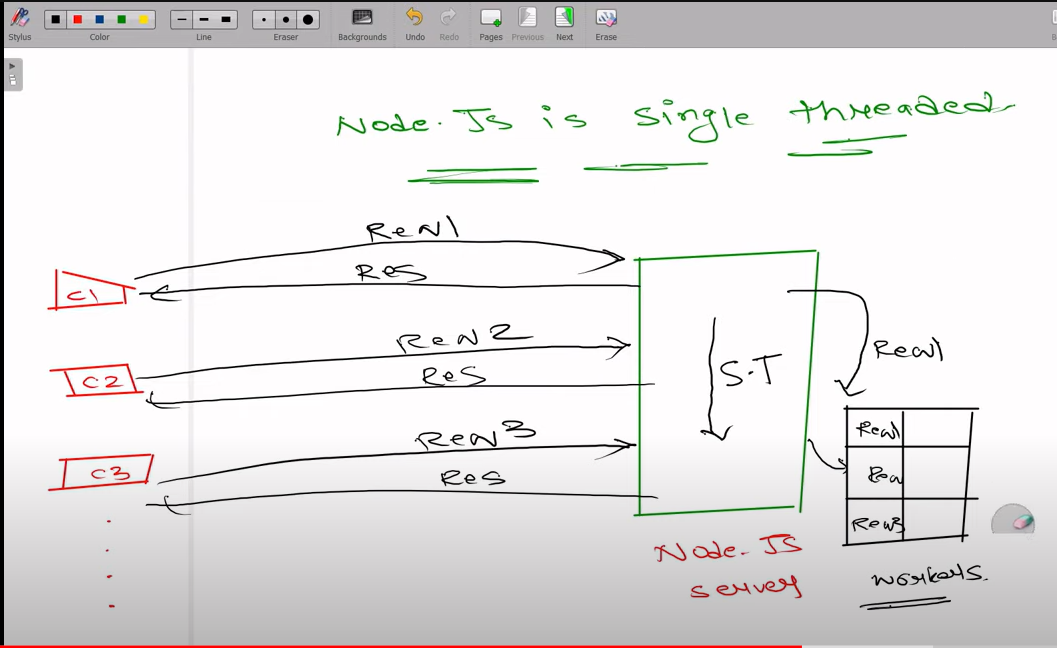 Stylus
Color
Line
Eraser
Backgrounds
Undo
Redo
Pages
Previous
Next
Erase
Node.JS is single threaded
Req1
Res
C1
Req2
Res
C2
Req3
Res
C3
S.T
Req1
Req1
Req
Req3
Node.JS
server
workers.